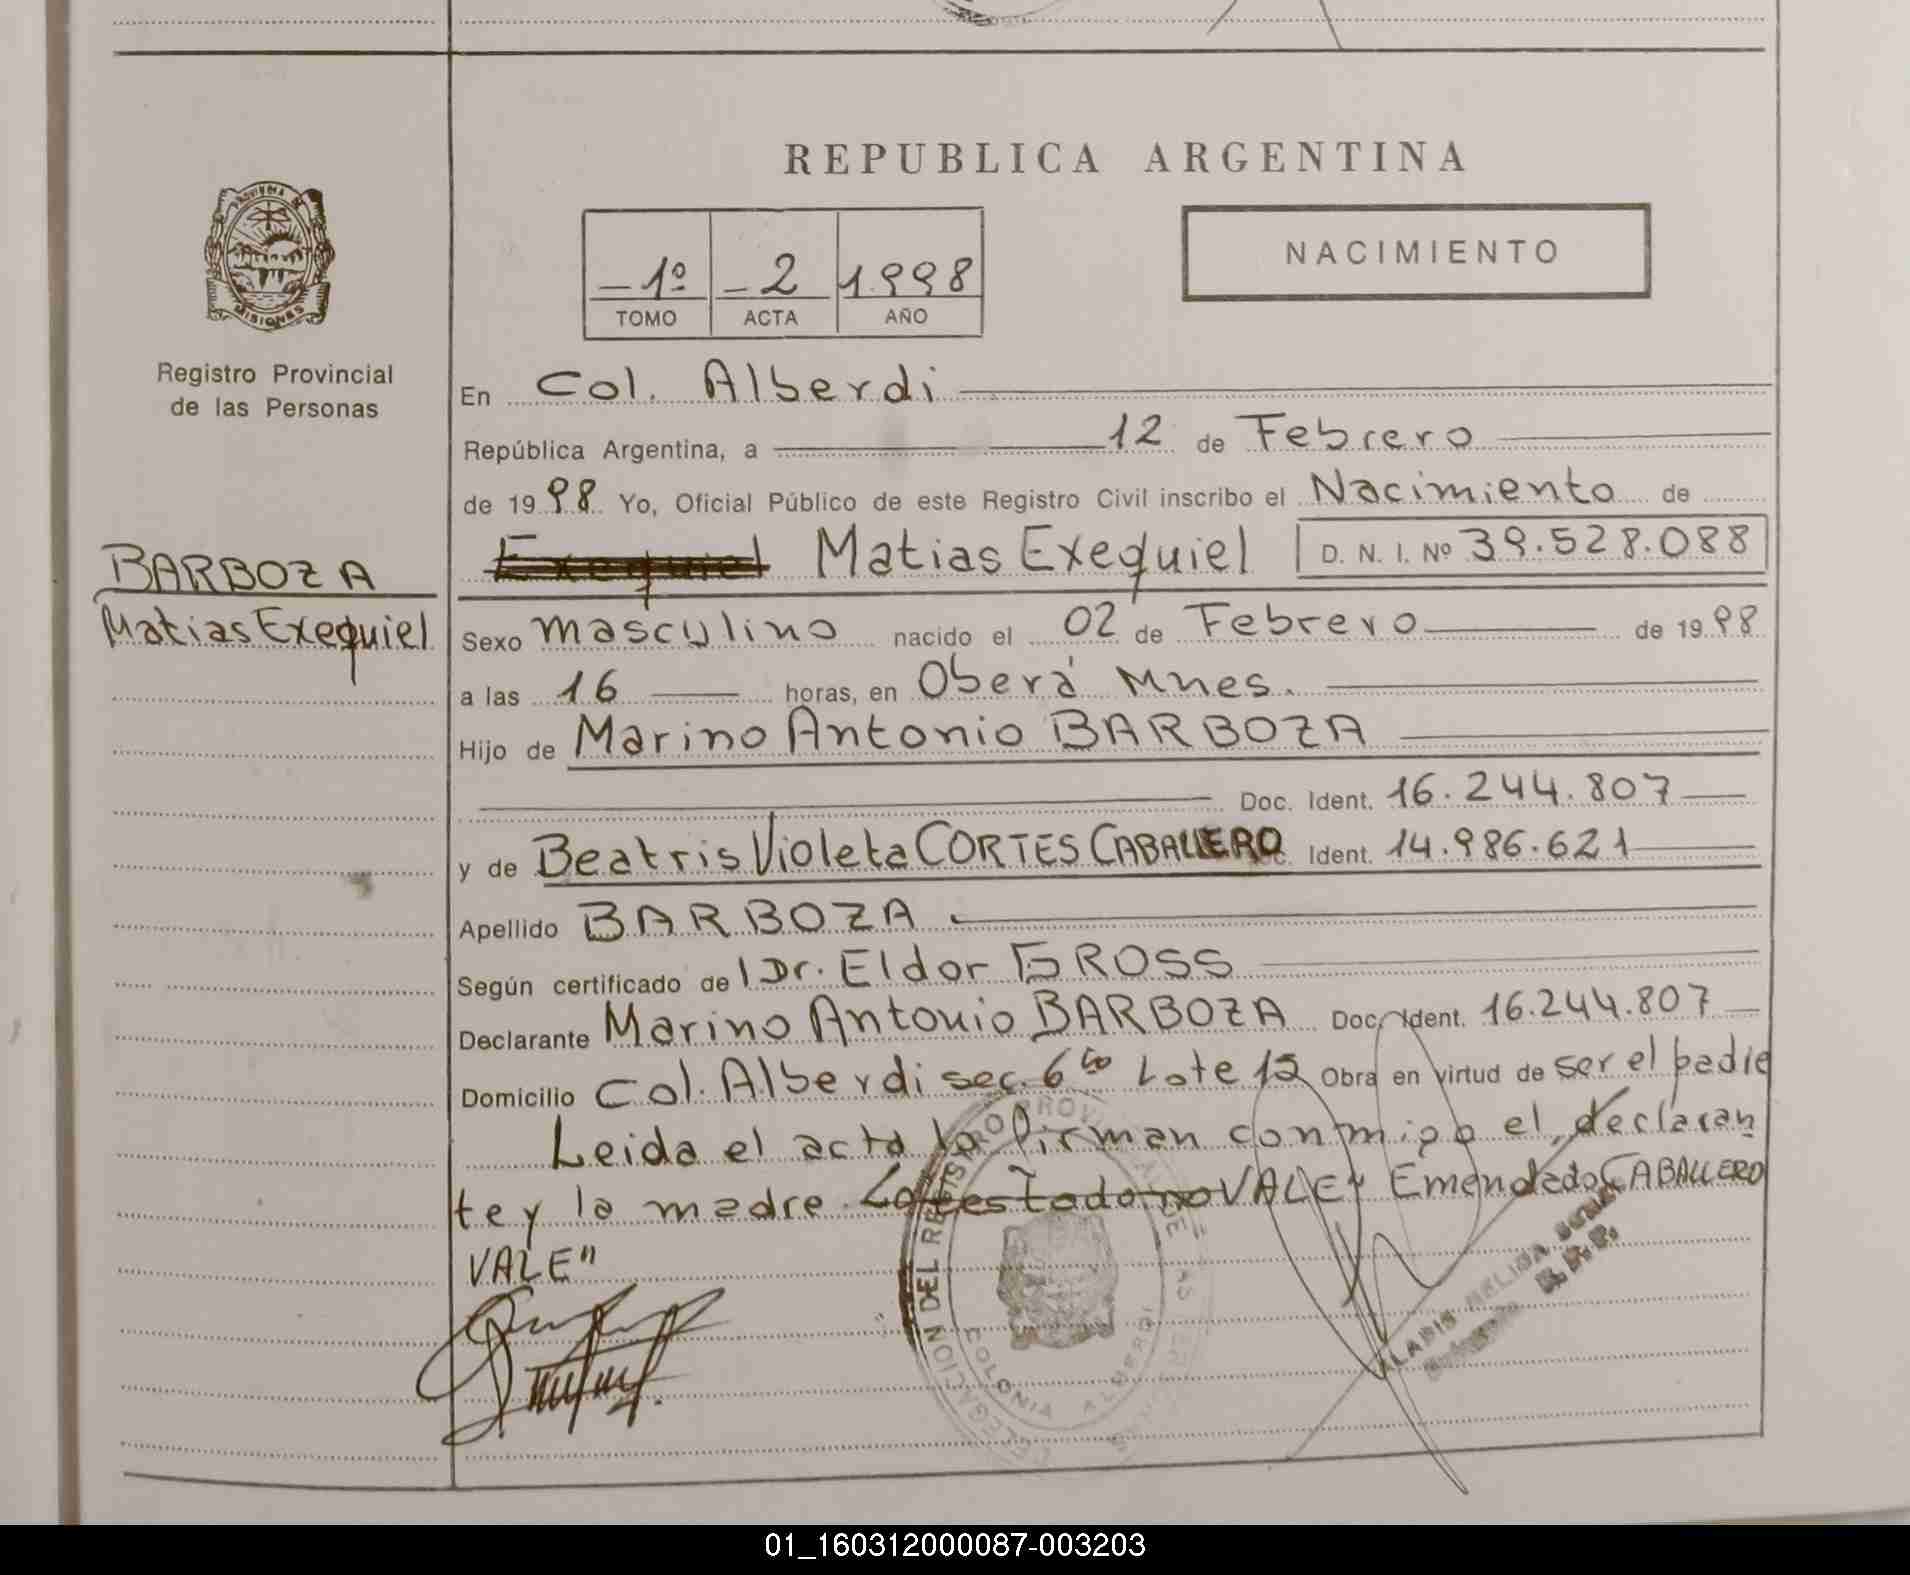 REPUBLICA ARGENTINA
PROVINCIA DE
MISIONES
Registro Provincial
de las Personas
NACIMIENTO
1º 2 1.998
TOMO ACTA AÑO
En Col. Alberdi
República Argentina, a 12 de Febrero
de 1998 Yo, Oficial Público de este Registro Civil inscribo el Nacimiento de
Exequiel Matias Exequiel D. N. I. Nº 39.528.088
BARBOZA
Matias Exequiel
Sexo masculino nacido el 02 de Febrero de 1998
a las 16 horas, en Oberá Mnes.
Hijo de Marino Antonio BARBOZA
Doc. Ident. 16.244.807
y de Beatris Violeta CORTES CABALLERO Ident. 14.986.621
Apellido BARBOZA
Según certificado de Dr. Eldor GROSS
Declarante Marino Antonio BARBOZA Doc. Ident. 16.244.807
Domicilio Col. Alberdi sec. 6ta Lote 12 Obra en virtud de ser el padre
Leida el acta la firman conmigo el declaran
te y la madre Lo testado no VALE y Emendado CABALLERO
VALE"
DELEGACION DEL REGISTRO PROVINCIAL DE LAS PERSONAS
COLONIA ALBERDI
01_160312000087-003203